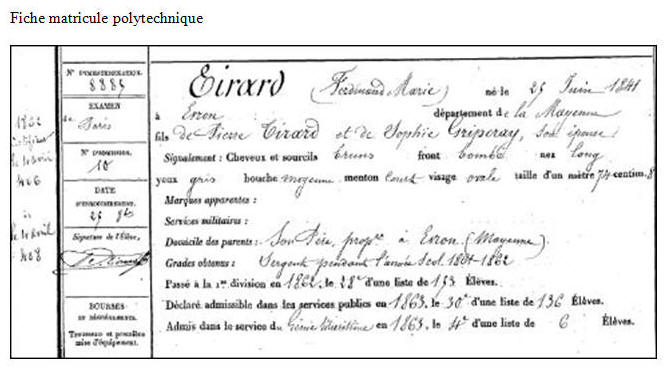 Fiche matricule polytechnique
N° D'IMMATRICULATION.
8885
EXAMEN
de Paris
N° D'ADMISSION.
10
DATE
D'ENREGISTREMENT.
25 8bre
Signature de l'Élève,
BOURSES
ET DÉGRÈVEMENTS.
Trousseau et première
mise d'équipement.
Tirard (Ferdinand Marie) né le 25 Juin 1841
à Evron département de la Mayenne
fils de Pierre Tirard et de Sophie Griperay, son épouse
Signalement : Cheveux et sourcils bruns front bombé nez long
yeux gris bouche moyenne menton court visage ovale taille d'un mètre 74 centim. 8
Marques apparentes :
Services militaires :
Domicile des parents : Son Père, propre à Evron (Mayenne)
Grades obtenus : Sergent pendant l'année Scol. 1861-1862
Passé à la 1re division en 1862, le 28e d'une liste de 153 Élèves.
Déclaré admissible dans les services publics en 1863, le 30e d'une liste de 136 Élèves.
Admis dans le service du Génie Maritime en 1863, le 4e d'une liste de 6 Élèves.